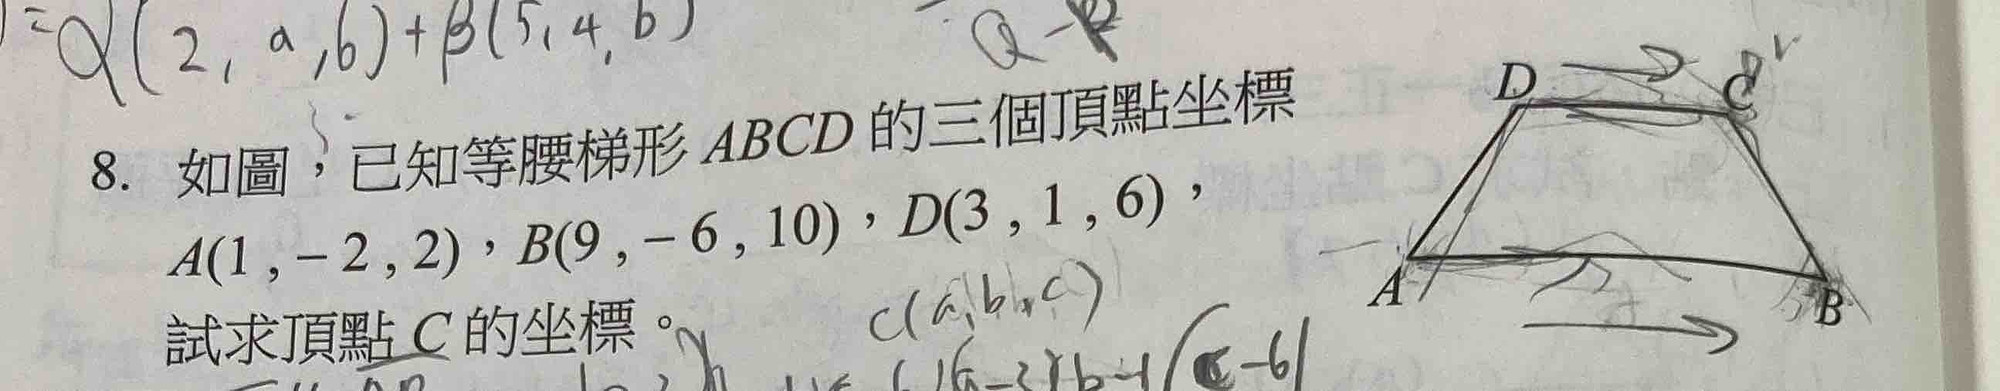 =α(2, a, b)+β(5, 4, b)
Q-R
8. 如圖，已知等腰梯形 ABCD 的三個頂點坐標
A(1 , −2 , 2)，B(9 , −6 , 10)，D(3 , 1 , 6)，
試求頂點 C 的坐標。
C(a, b, c)
D
C
A
B